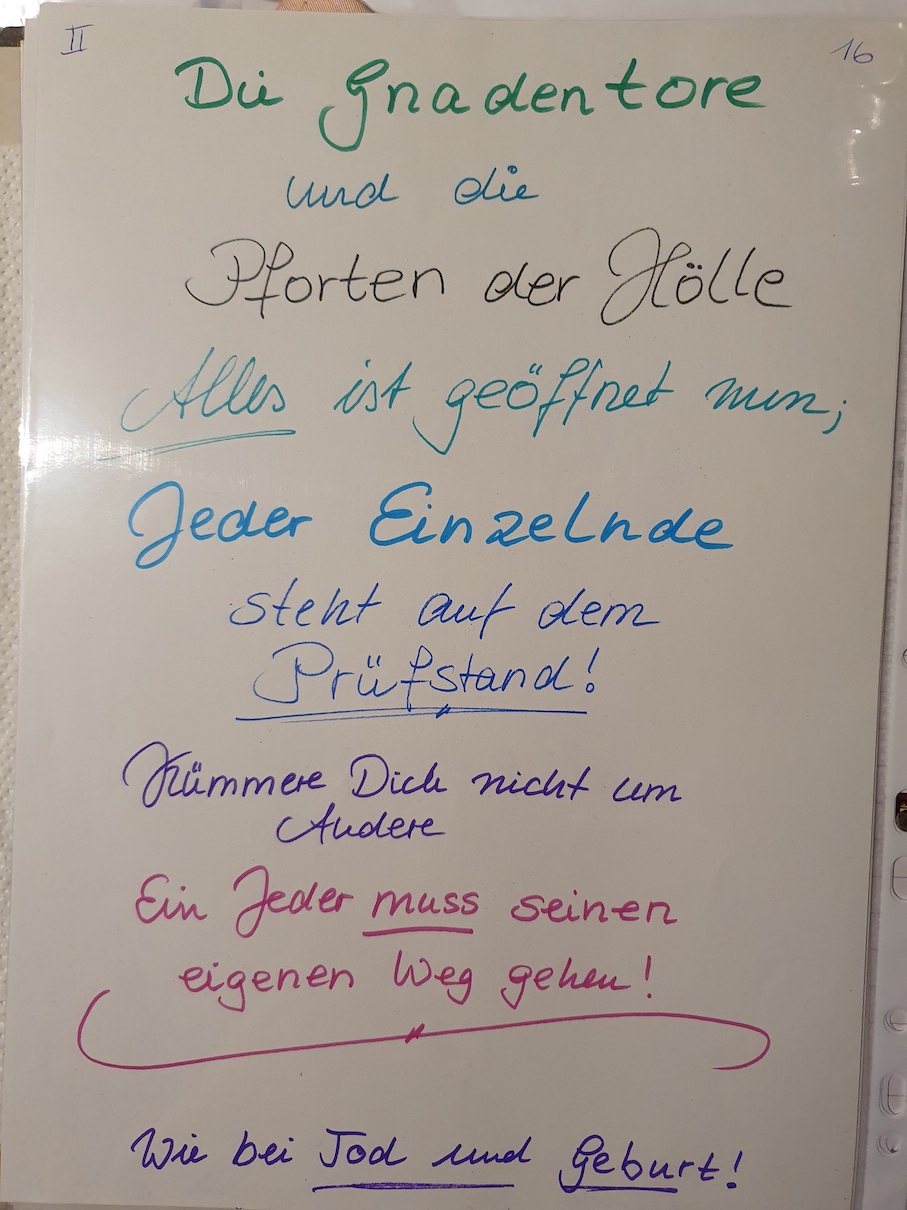 II 16
Die Gnadentore
und die
Pforten der Hölle
Alles ist geöffnet nun;
Jeder Einzelnde
steht auf dem
Prüfstand!
Kümmere Dich nicht um
Andere
Ein Jeder muss seinen
eigenen Weg gehen!
Wie bei Tod und Geburt!